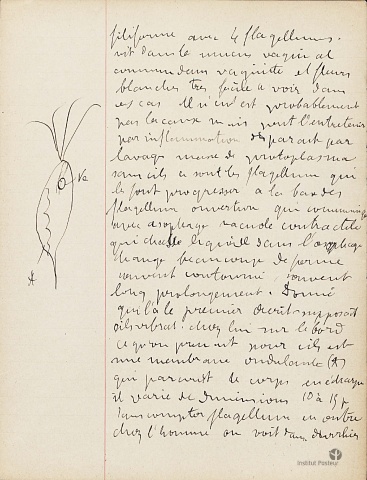 filiforme avec 4 flagellums.
vit dans le mucus vaginal
commun dans vaginite et fleurs
blanches très facile à voir dans
ces cas Il n'en est probablement
pas la cause mais peut l'entretenir
par inflammation disparait par
lavage masse de protoplasma
sans cils ce sont les flagellum qui
le font progresser à la base des
flagellum ouverture qui communique
avec œsophage vacuole contractile
qui chasse liquide dans l'œsophage
change beaucoup de forme
souvent contourné souvent
long prolongement. Donné
qui l'a le premier décrit supposait
cils vibrat. chez lui sur le bord
ce qu'on prenait pour cils est
une membrane ondulante (A)
qui parcourt le corps en écharpe
il varie de dimensions 10 à 15 µ
sans compter flagellum en outre
chez l'homme on voit dans
Va
A
Institut Pasteur